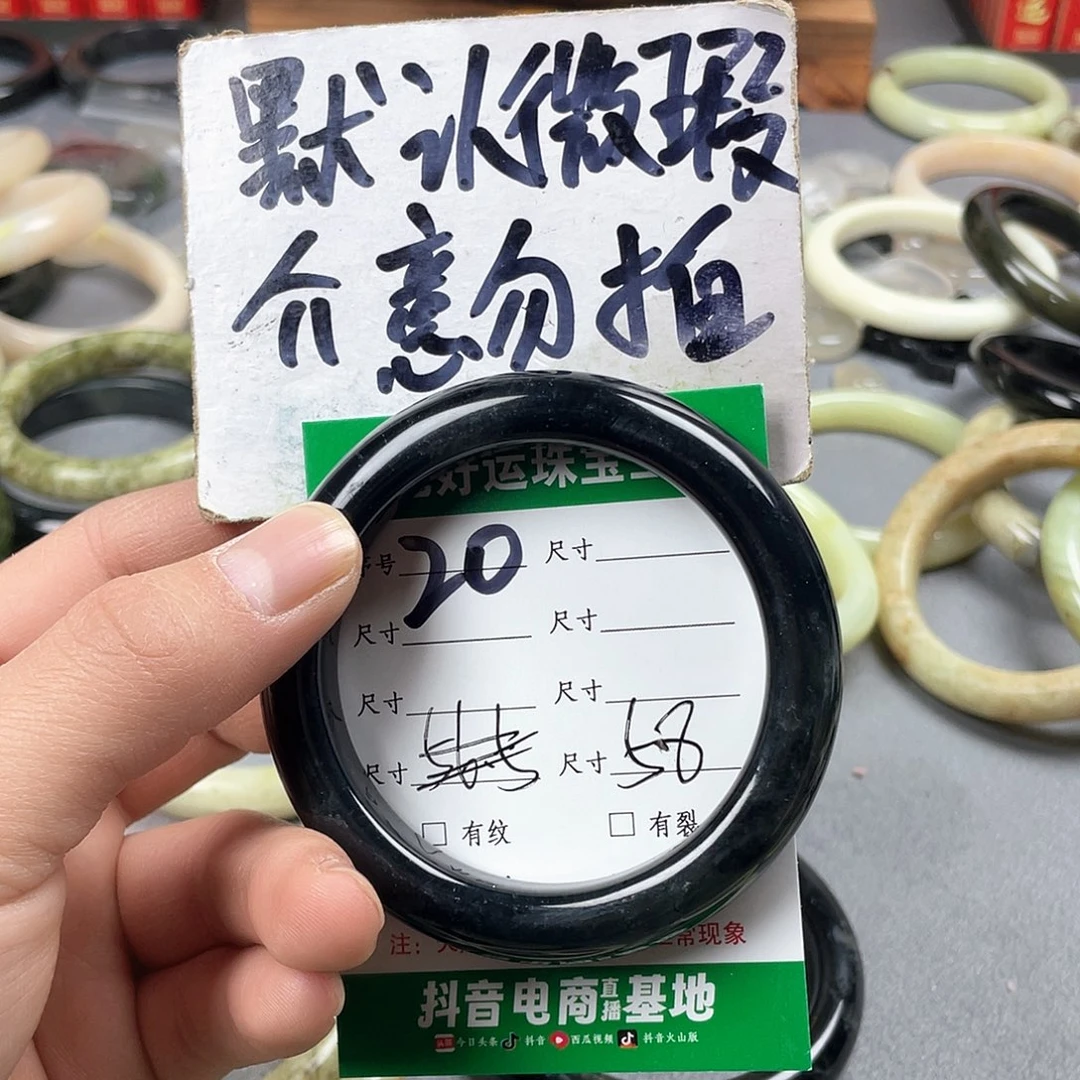 默认微瑕
介意勿拍
好运珠宝
序号 20 尺寸
尺寸 尺寸
尺寸 尺寸
尺寸 尺寸 58
□ 有纹 □ 有裂
注： 正常现象
抖音电商直播基地
头条 今日头条 抖音 西瓜视频 抖音火山版